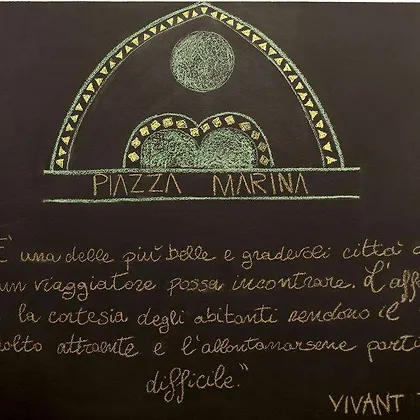 PIAZZA MARINA
È una delle più belle e gradevoli città
un viaggiatore possa incontrare. L'aff
la cortesia degli abitanti rendono il
molto attraente e l'allontanarsene parti
difficile."
VIVANT